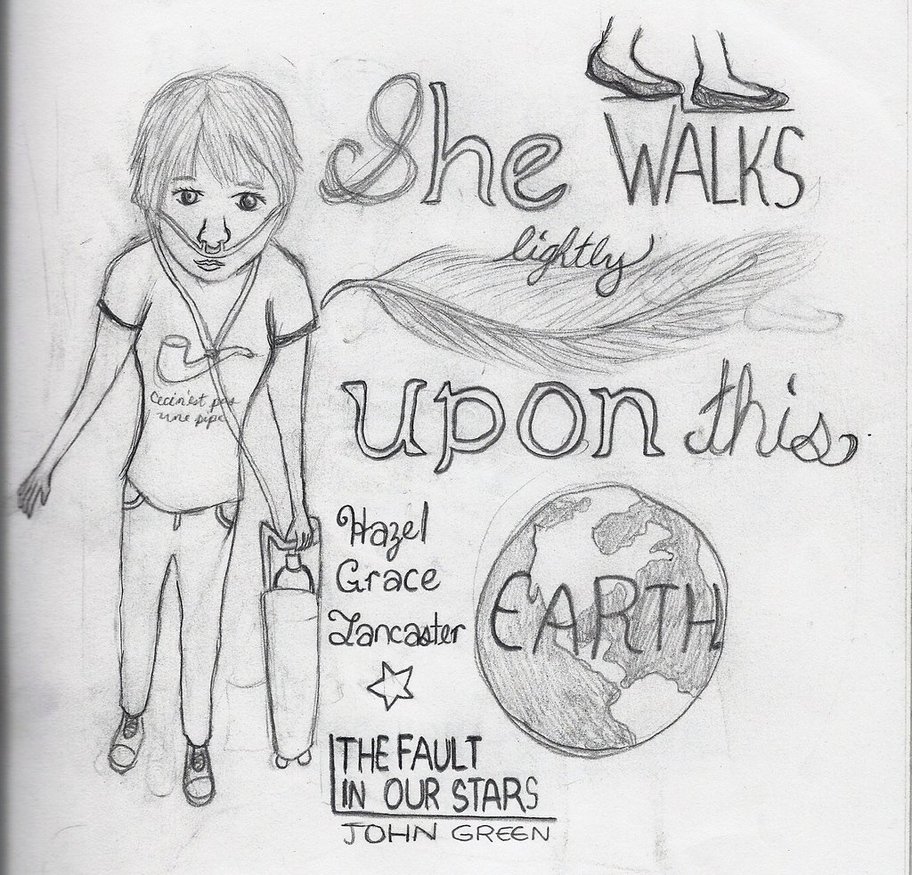 She WALKS
lightly
upon this
EARTH
Ceci n'est pas
une pipe
Hazel
Grace
Lancaster
THE FAULT
IN OUR STARS
JOHN GREEN